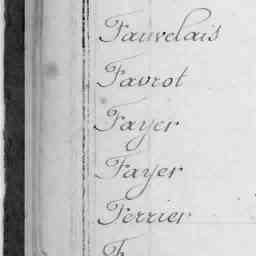 Fauvelais
Favrot
Fayer
Fayer
Ferrier